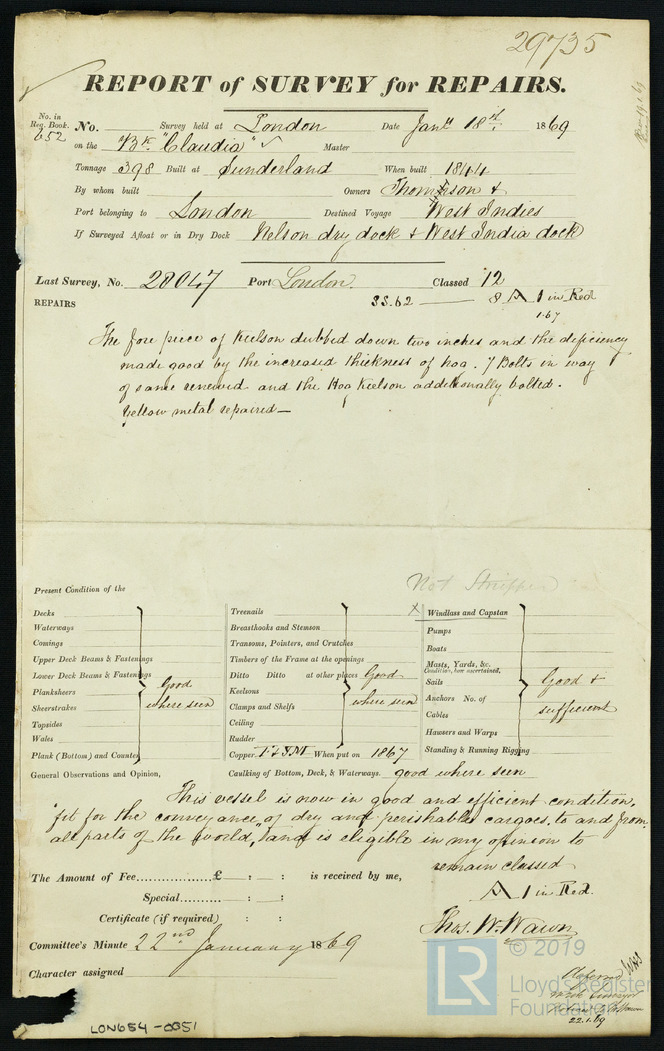 29735
REPORT of SURVEY for REPAIRS.
No. in
Reg. Book.
652
No. Survey held at London Date Jany 18th 1869
on the Bk "Claudia" Master
Tonnage 398 Built at Sunderland When built 1844
By whom built Owners Thompson &
Port belonging to London Destined Voyage West Indies
If Surveyed Afloat or in Dry Dock Nelson dry dock & West India dock
Last Survey, No. 28047 Port London Classed 12
REPAIRS SS.62 — 8 A 1 in Red
1.67
The fore piece of Keelson dubbed down two inches and the deficiency
made good by the increased thickness of hog. 7 Bolts in way
of same renewed and the Hog Keelson additionally bolted.
Yellow metal repaired—
Not Stripped
Present Condition of the
Decks
Waterways
Comings
Upper Deck Beams & Fastenings
Lower Deck Beams & Fastenings
Planksheers
Sheerstrakes
Topsides
Wales
Plank (Bottom) and Counter
Good
where seen
Treenails
Breasthooks and Stemson
Transoms, Pointers, and Crutches
Timbers of the Frame at the openings
Ditto Ditto at other places
Keelsons
Clamps and Shelfs
Ceiling
Rudder
Good
where seen
Copper When put on 1867
X Windlass and Capstan
Pumps
Boats
Masts, Yards, &c.
Condition, how ascertained,
Sails
Anchors No. of
Cables
Hawsers and Warps
Standing & Running Rigging
Good &
sufficient
General Observations and Opinion, Caulking of Bottom, Deck, & Waterways. good where seen
This vessel is now in good and efficient condition,
"fit for the conveyance of dry and perishable cargoes, to and from
all parts of the world," and is eligible in my opinion to
remain classed
A 1 in Red.
The Amount of Fee................£ : : is received by me,
Special.......... : :
Certificate (if required) : :
Thos. W. Wawn
Committee's Minute 22nd January 1869
Character assigned
22.1.69
LON654-0351
LR
© 2019
Lloyd's Register
Foundation